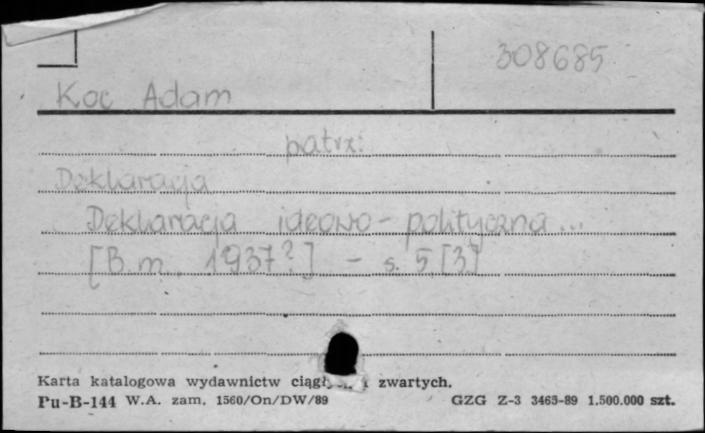 308685
Koc Adam
patrz:
Deklaracja
Deklaracja ideowo-polityczna...
[B.m., 1937?] - s. 5 [3]
Karta katalogowa wydawnictw zwartych.
Pu-B-144 W.A. zam. 1560/On/DW/89 GZG Z-3 3463-89 1.500.000 szt.